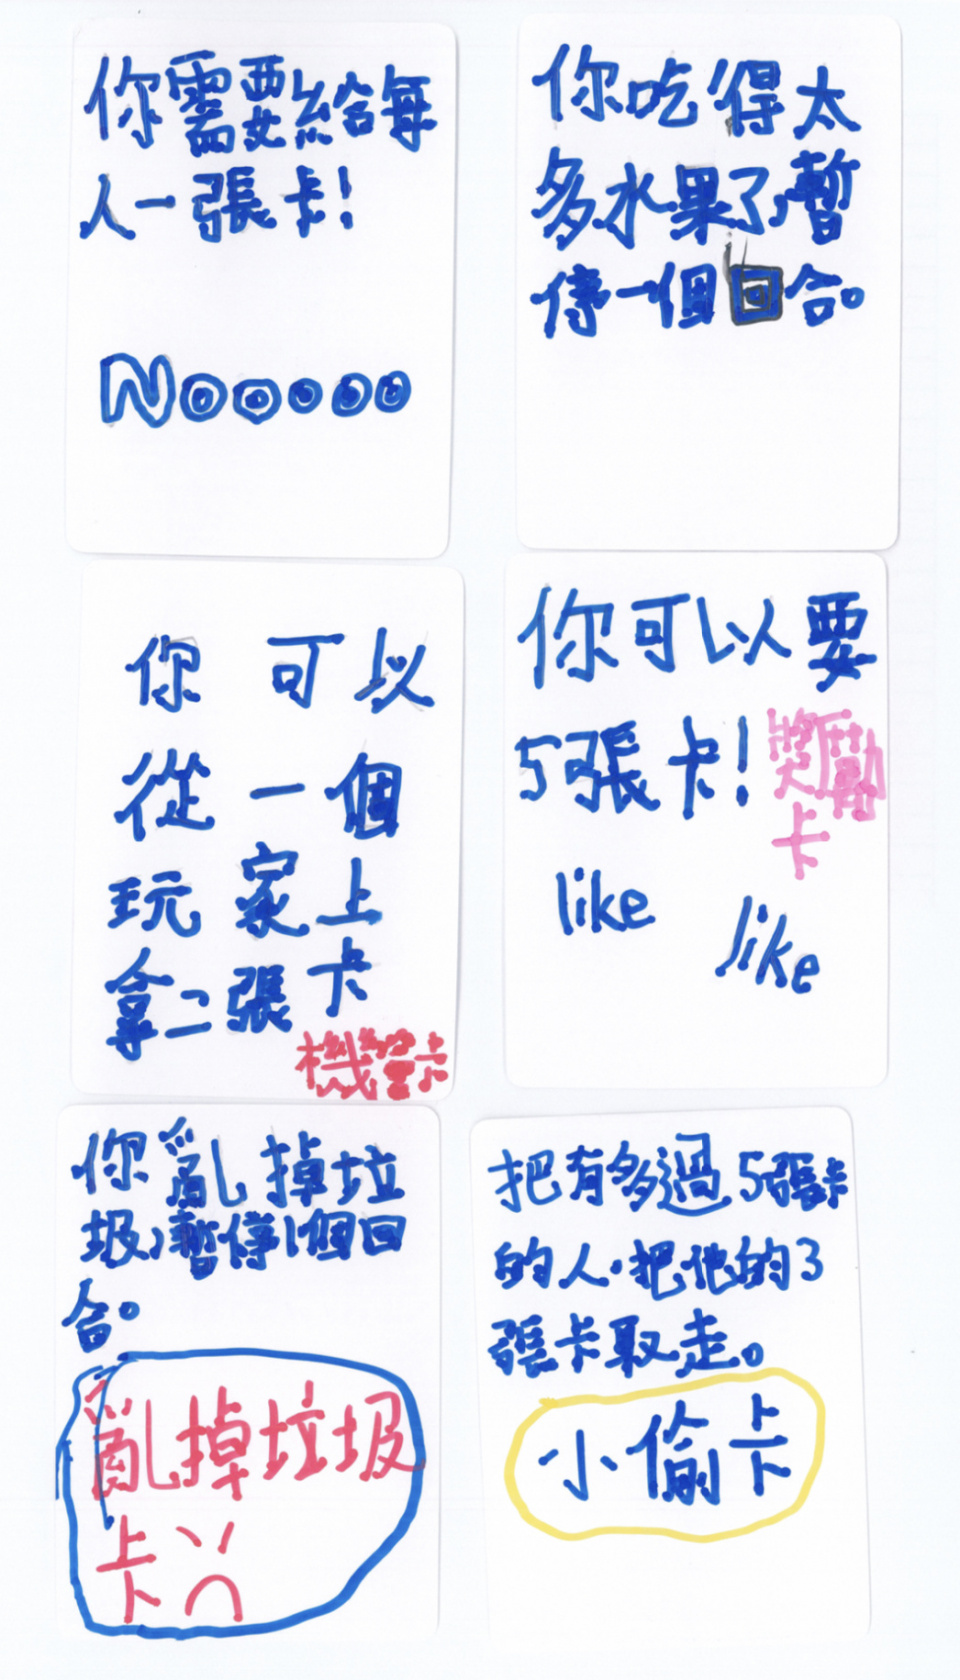 你需要給每
人一張卡!
Nooooo
你吃得太
多水果了,暫
停一個回合。
你可以
從一個
玩家上
拿二張卡
機會卡
你可以要
5張卡!
獎勵
卡
like
like
你亂掉垃
圾,暫停1個回
合。
亂掉垃圾
卡
把有多過5張卡
的人,把他的3
張卡取走。
小偷卡